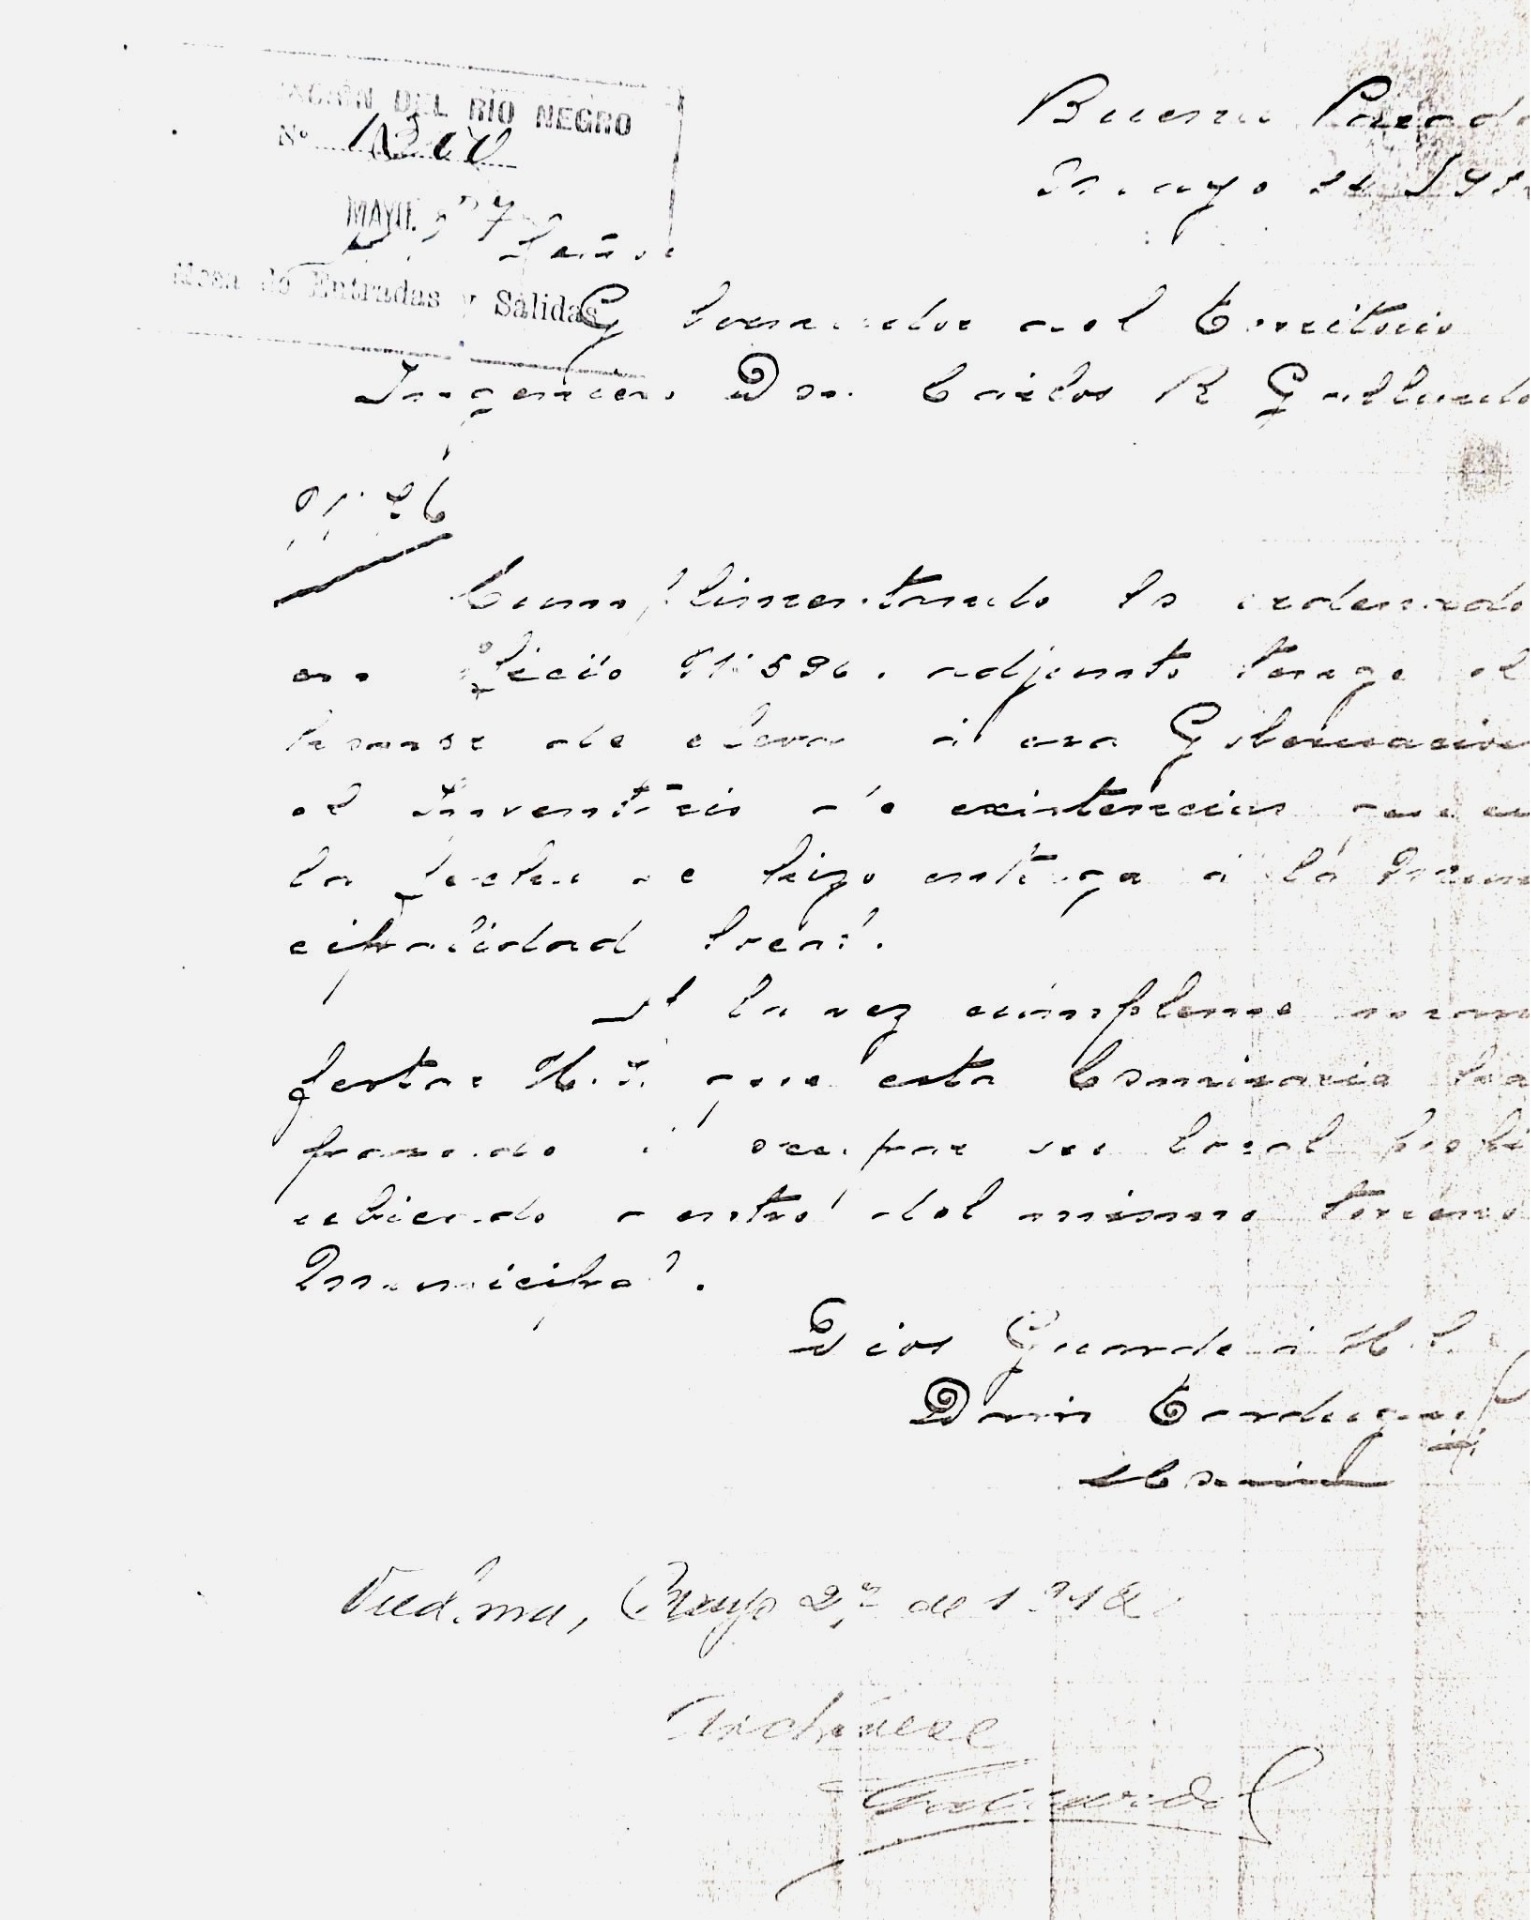 DEL RIO NEGRO
Nº
MAYO
Mesa de Entradas y Salidas
Buena Parada
Mayo de 191
Señor
Gobernador del Territorio
Ingeniero Don Carlos R Gallardo
Cumplimentando lo ordenado
en oficio Nº 596. adjunto tengo el
honor de elevar á esa Gobernacion
el Inventario de existencias que en
la fecha se hizo entrega á la Muni
cipalidad local.
A la vez cumpleme mani
festar U.S. que esta Comisaria ha
pasado á ocupar su local
ubicado dentro del mismo terreno
Municipal.
Dios Guarde á U.S.
Viedma, Mayo de 1912
Archívese
Gallardo